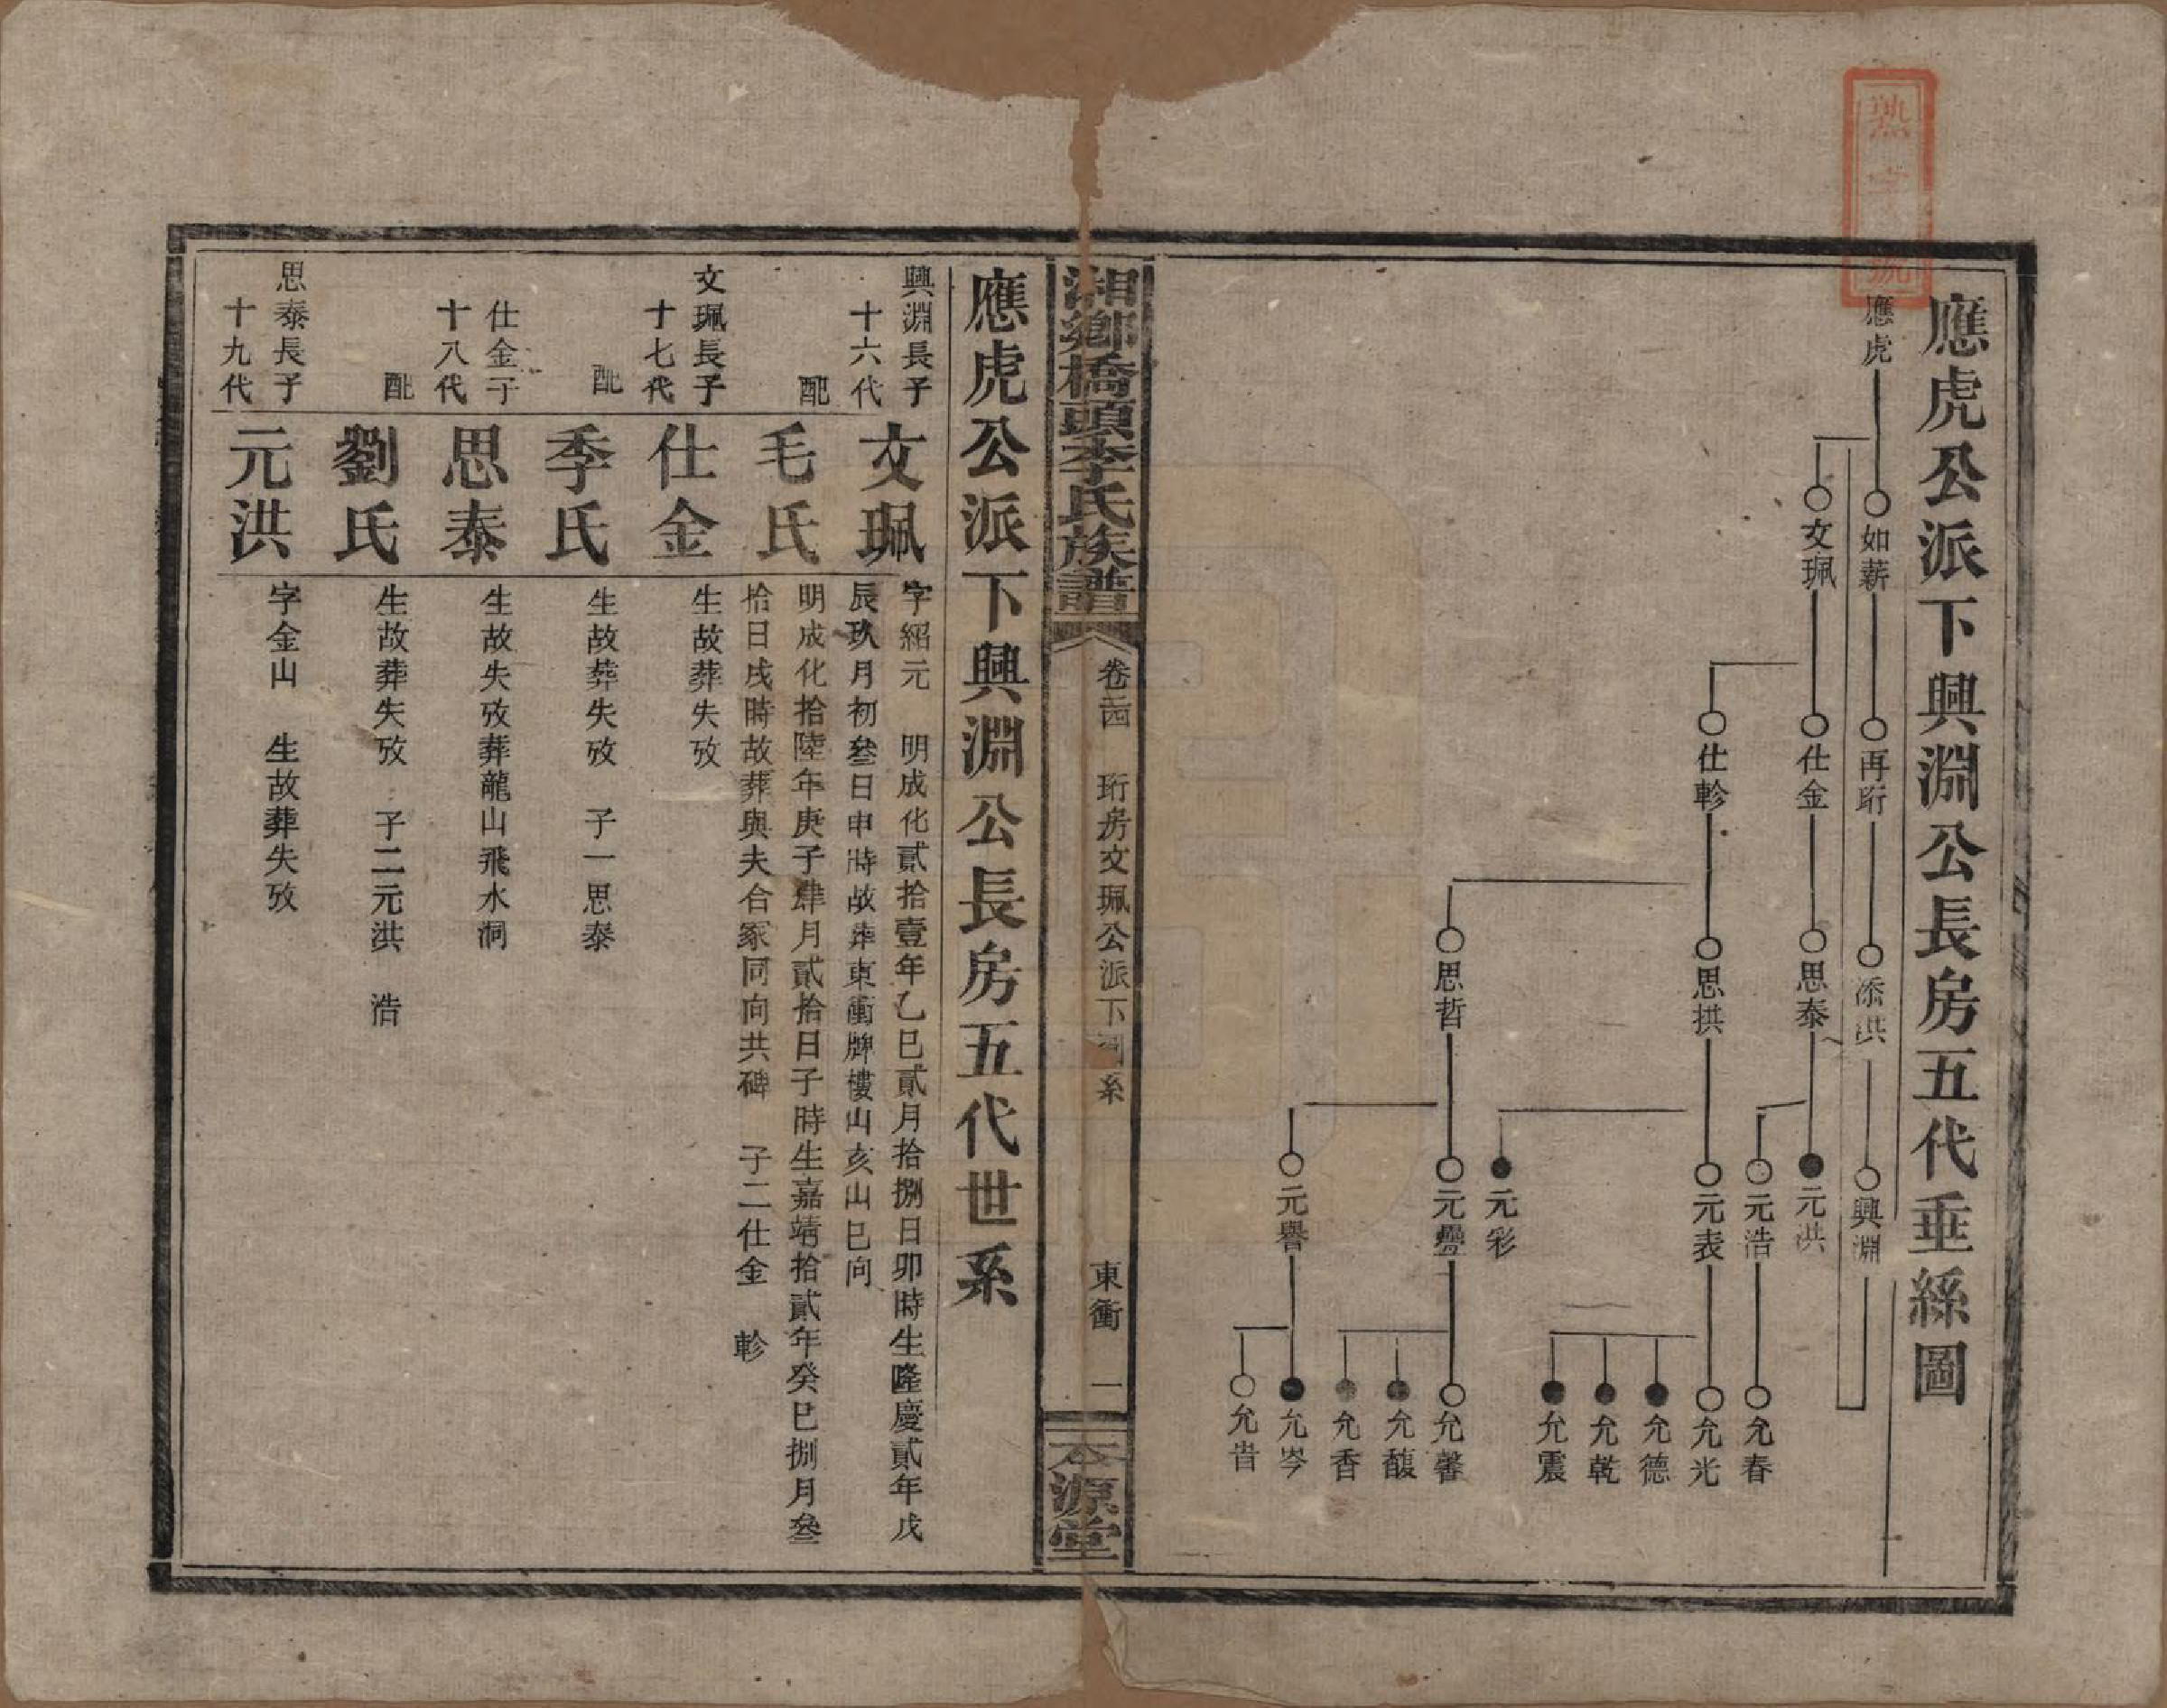 應虎公派下興淵公長房五代垂絲圖
應虎
如薪
再珩
添洪
興淵
文珮
仕金
思泰
元洪
元浩
允春
仕軫
思拱
元表
允光
允德
允乾
允震
元彩
思哲
元疊
允馨
允馥
允香
元譽
允岑
允昔
湘鄉橋頭李氏族譜
卷二西
珩房文珮公派下 系
東衝
一
本源堂
應虎公派下興淵公長房五代世系
興淵長子
十六代
文珮
字紹元 明成化貳拾壹年乙巳貳月拾捌日卯時生隆慶貳年戊
辰玖月初叄日申時故葬東衝牌樓山亥山巳向
配
毛氏
明成化拾陸年庚子肆月貳拾日子時生嘉靖拾貳年癸巳捌月叄
拾日戌時故葬與夫合冢同向共碑 子二仕金 軫
文珮長子
十七代
仕金
生故葬失攷
配
季氏
生故葬失攷 子一思泰
仕金子
十八代
思泰
生故失攷葬龍山飛水洞
配
劉氏
生故葬失攷 子二元洪 浩
思泰長子
十九代
元洪
字金山 生故葬失攷